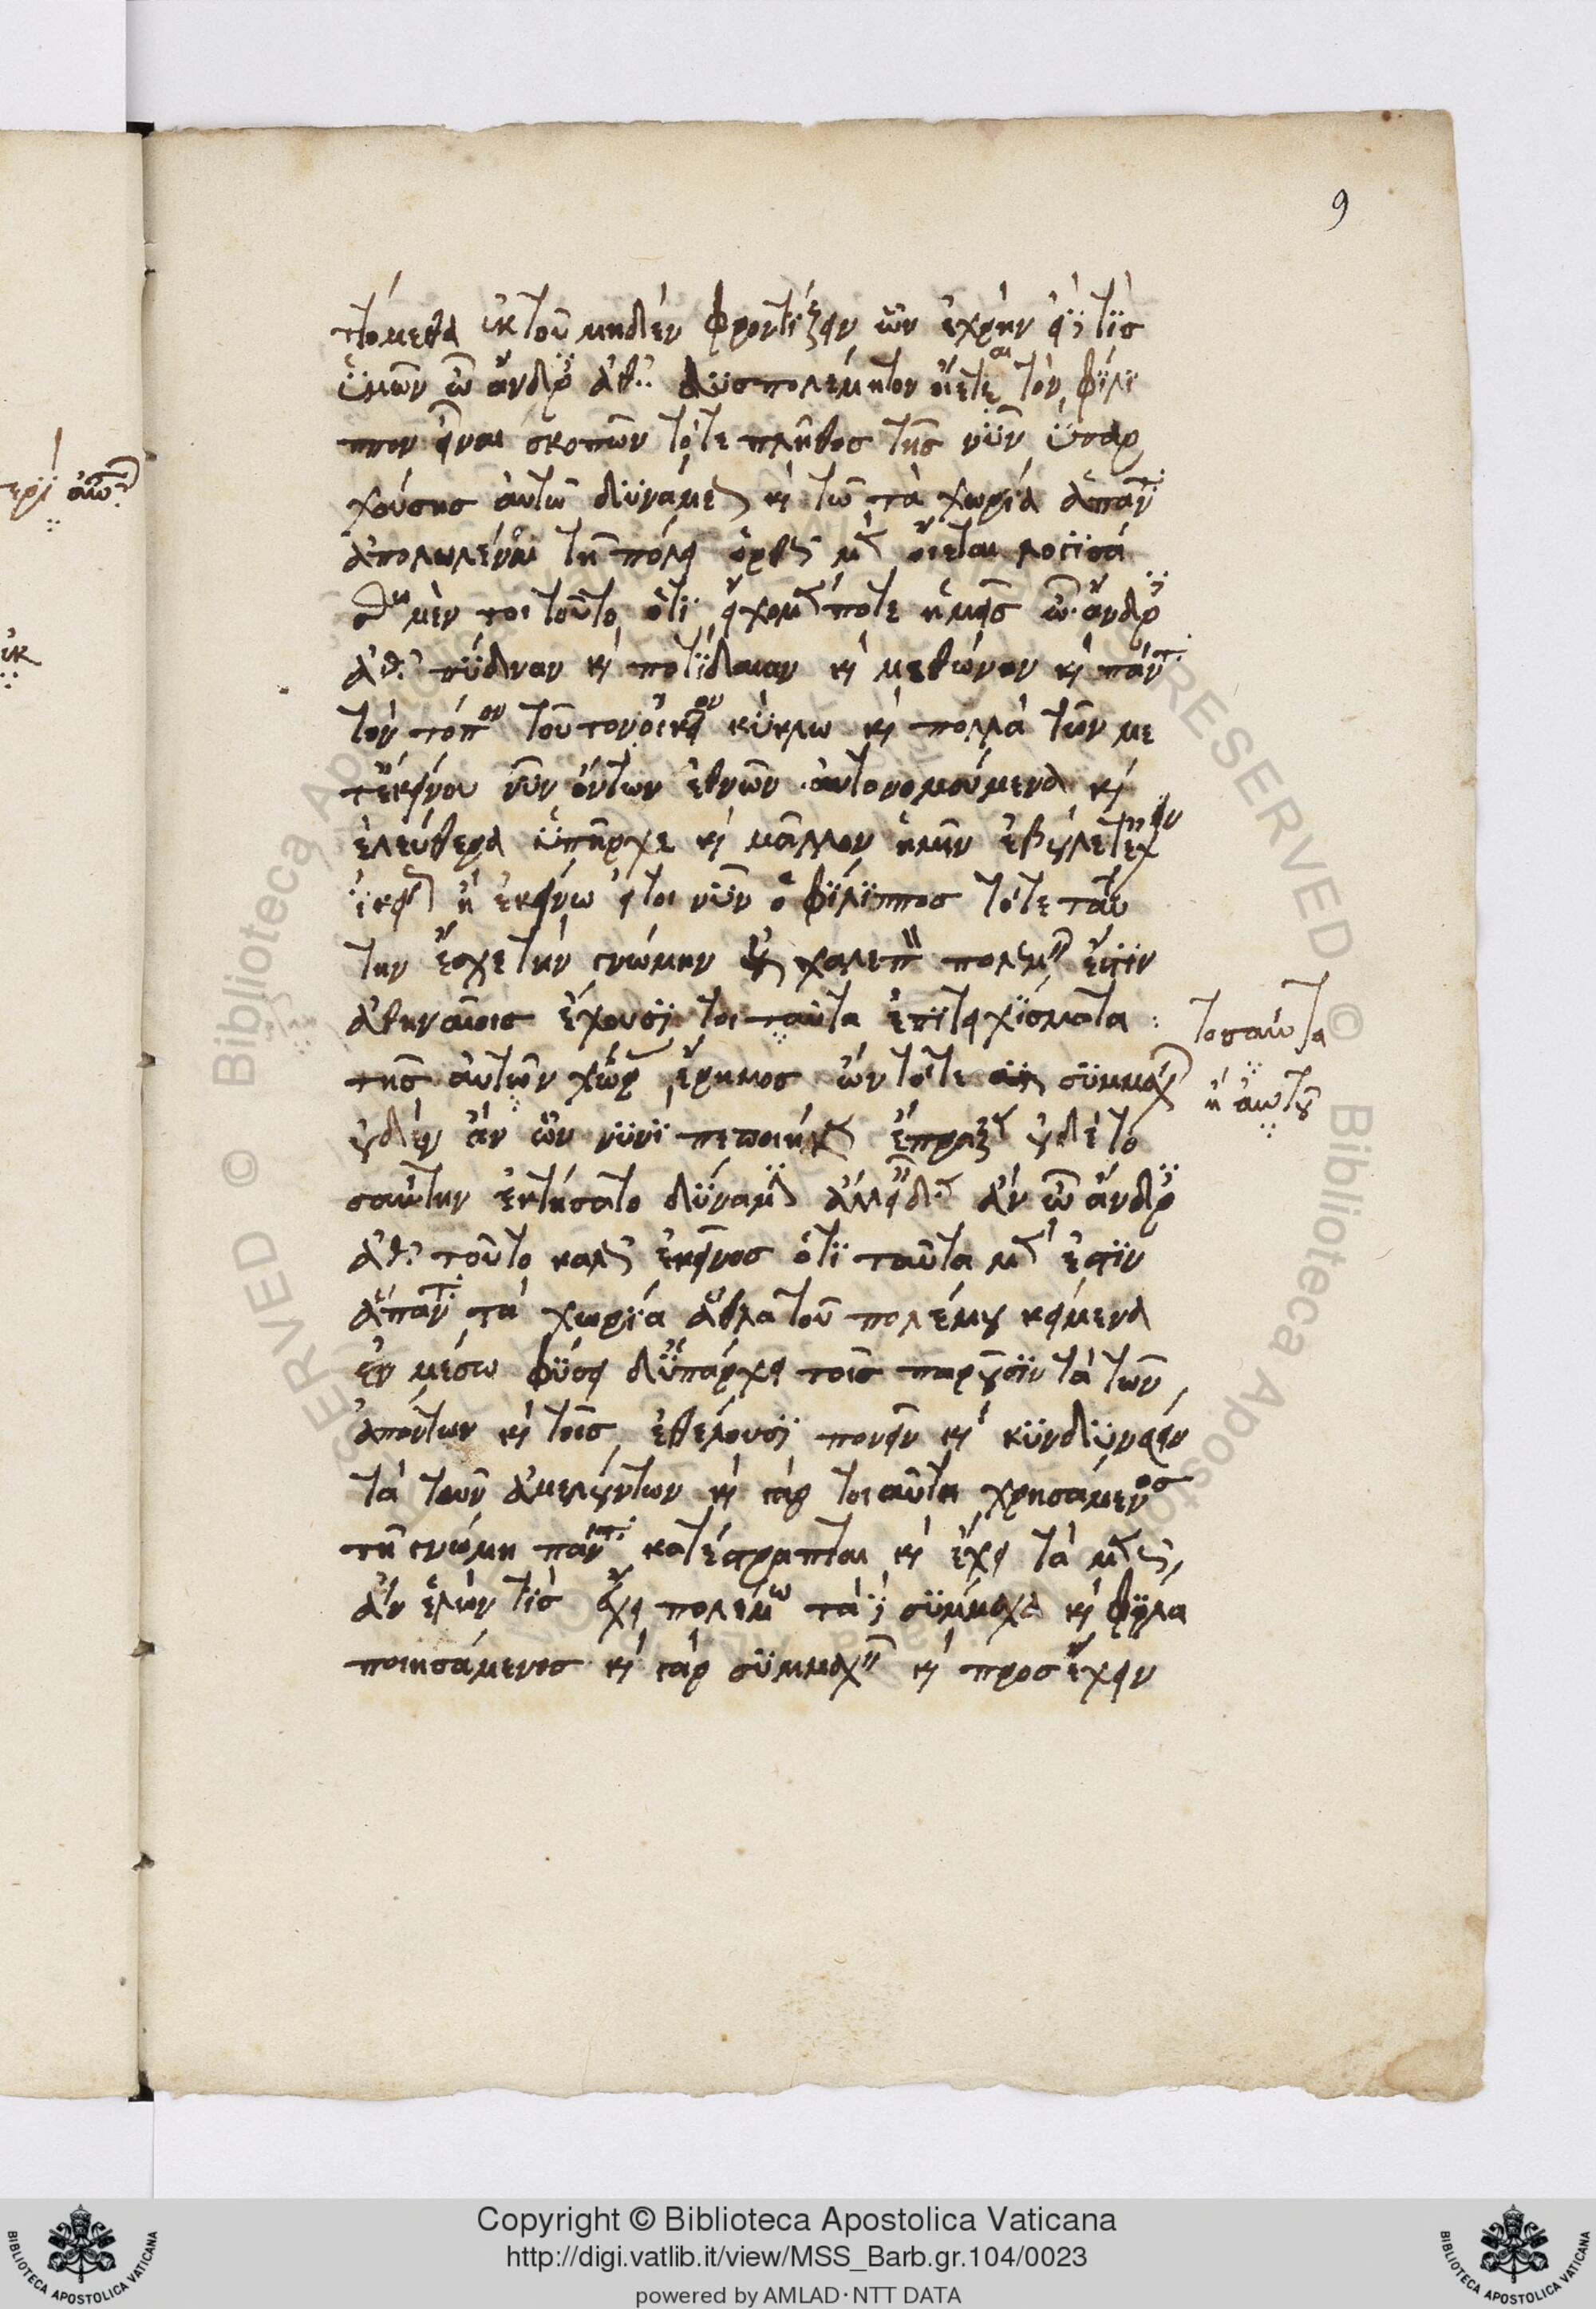 9
πτόμεθα ἐκ τοῦ μηδὲν φροντίζειν ὧν ἐχρῆν εἰ δέ τις
ὑμῶν ὦ ἄνδρ ἀθ δυσπολέμητον οἴεται τὸν φίλι
ππον εἶναι σκοπῶν τό τε πλῆθος τῆς νῦν ὑπαρ
χούσης αὐτῶ δυνάμεως καὶ τῶ τὰ χωρία ἅπαντ
ἀπολωλέναι τῆ πόλει ὀρθῶς μὲν οἴεται λογισά
σθω μέν τοι τοῦτο ὅτι εἴχομέν ποτε ἡμεῖς ὦ ἄνδρ
ἀθ πύδναν καὶ ποτίδαιαν καὶ μεθώνην καὶ πάντ
τὸν τόπον τοῦτον οἰκεῖον κύκλω καὶ πολλὰ τῶν με
τ' ἐκείνου νῦν ὄντων ἐθνῶν αὐτονομούμενα καὶ
ἐλεύθερα ὑπῆρχε καὶ μᾶλλον ἡμῖν ἐβούλετ' ἔχειν
οἰκείως ἢ ἐκείνω εἰ τοι νῦν ὁ φίλιππος τότε ταύ
την ἔσχε τὴν γνώμην ὡς χαλεπὸν πολεμεῖν ἐστὶν
ἀθηναίοις ἔχουσι τοιταῦτα ἐπιτειχίσματα
τῆς αὐτῶν χώρας ἔρημος ὢν τότε συμμάχων
οὐδὲν ἂν ὧν νυνὶ πεποίηκεν ἔπραξεν οὐδὲ το
σαύτην ἐκτήσατο δύναμιν ἀλλ' εἶδεν ἂν ὦ ἄνδρ
ἀθ τοῦτο καλῶς ἐκεῖνος ὅτι ταῦτα μέν ἐστιν
ἅπαντ τὰ χωρία ἆθλα τοῦ πολέμου κείμενα
ἐν μέσω φύσει δ' ὑπάρχει τοῖς παροῦσιν τὰ τῶν
ἀπόντων καὶ τοῖς ἐθέλουσι πονεῖν καὶ κυνδυνεύειν
τὰ τῶν ἀμελούντων καὶ γάρ τοι αὐτῆ χρησάμενος
τῆ γνώμη πάντ κατέστραπται καὶ ἔχει τὰ μὲν ὡς
ἂν ἑλών τις ἔχει πολέμω τὰ δὲ σύμμαχα καὶ φίλα
ποιησάμενος καὶ γὰρ συμμαχεῖν καὶ προσέχειν
τοσαῦτα
ἢ αὐτοῦ
ἐκ
Copyright © Biblioteca Apostolica Vaticana
http://digi.vatlib.it/view/MSS_Barb.gr.104/0023
powered by AMLAD·NTT DATA
BIBLIOTECA APOSTOLICA VATICANA
BIBLIOTECA APOSTOLICA VATICANA